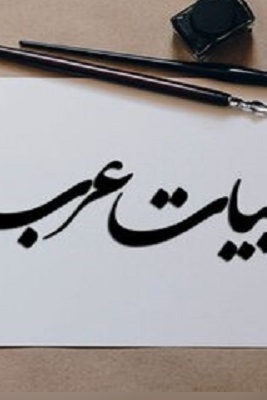 بیات عرب